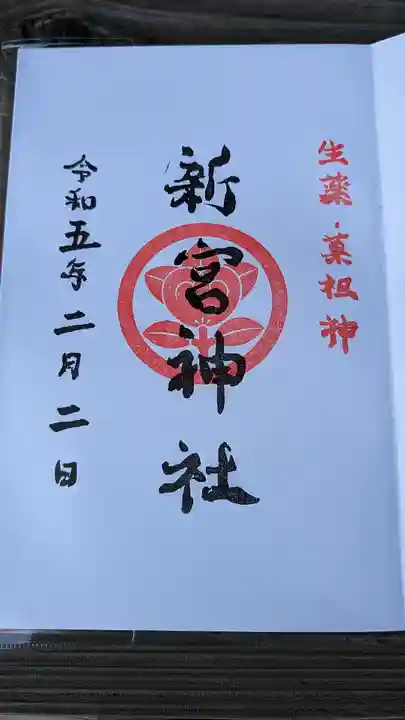 生薬・菓祖神
新宮神社
令和五年二月二日